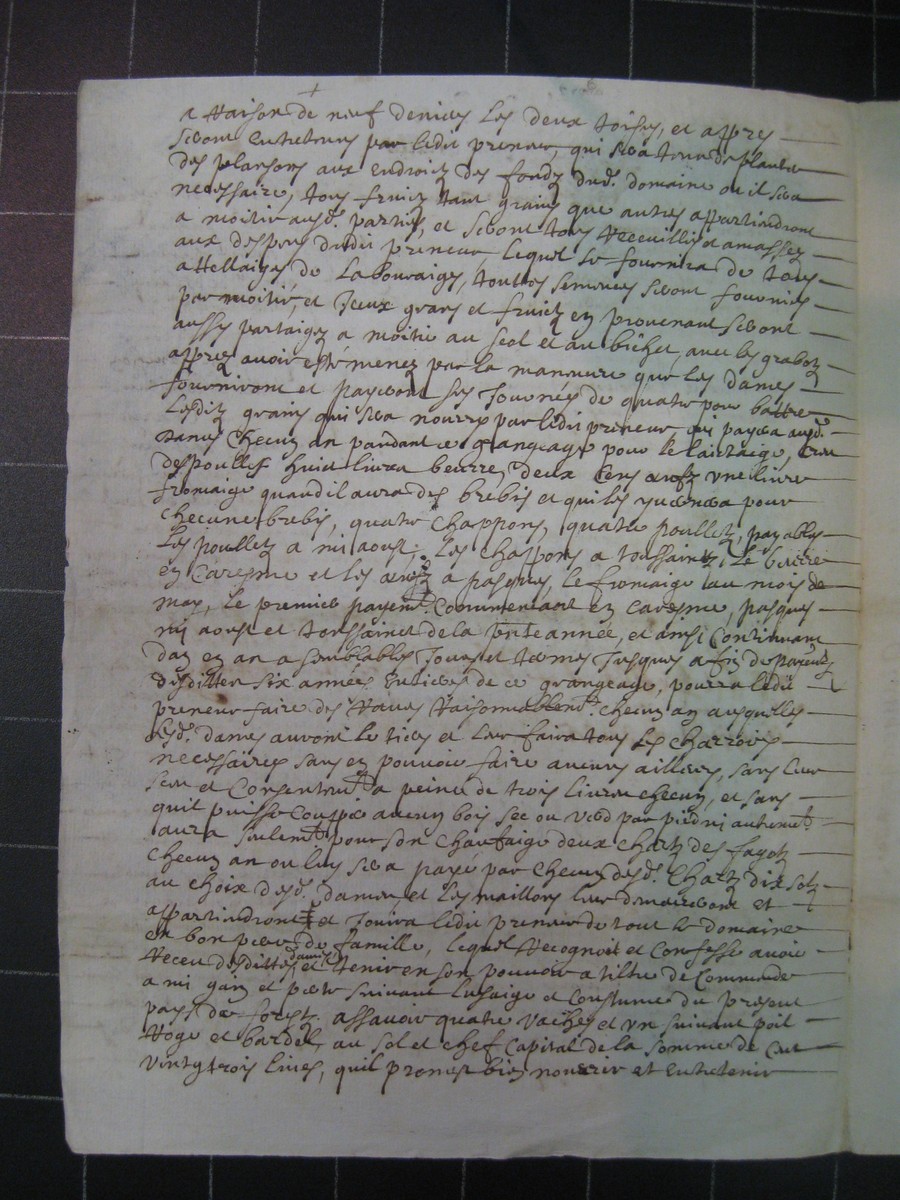 a Raison de neuf deniers les deux toises, et appres
seront entretenues par ledit preneur, qui sera tenu de planter
des plansons aux endroictz des fondz dud. domaine ou il sera
necessaire, tous fruictz tant grains que autres appartiendront
a moitie ausd. parties, et seront tous Receuillis et amassez
aux despens dudit preneur, lequel se fournira de tous
attellaiges de Labouraiges, touttes semences seront fournies
par moitié, et Iceux grains et fruictz en provenant seront
aussy partaigez a moitie au seol et au bichet, avec les grabotz
apprez avoir este menez par la manœuvre que les dames
fourniront et payeront ses Journées de quatre pour battre
Lesditz grains qui sera nourry par ledit preneur qui payera ausd.
dames checun an pandant ce grangeage pour le laictaige,
des poulles huict livres beurre, deux cens œufz une livre
fromaige quand il aura des brebis et qu'il les yvernera pour
checune brebis, quatre chappons, quatre poulletz, payables
Les poulletz a mi aoust, Les chappons a toussainctz, Le beurre
en Caresme et les œufz a pasques, le fromaige au mois de
may, Le premier payemt. Commenceant en caresme, pasques
mi aoust et toussainct de la pnte année, et ainsi Continuant
dan en an a semblables Jours et termes Jusques a fin de payemt
desdittes six années entieres de ce grangeage, pourra ledit
preneur faire des Raves Raisonnablemt. checun an ausquelles
Lesd. dames auront le tiers et leur faira tous les charrois
necessaires sans en pouvoir faire aucuns ailleurs, sans leur
sceu et Consentemt a peine de trois livres checun, et sans
quil puisse Coupper aucun bois sec ou verd par pied ni autremt.
aura seulemt pour son chauffaige deux chartz des fagotz
checun an ou luy sera payé par checun desd. Chartz dix solz
au choix desd. dames, et Les maillons leur demeureront et
appartiendront et Jouira ledit preneur de tout le domaine
en bon pere de famille, lequel Recognoit et Confesse avoir
Receu desdittes dames et tenir en son pouvoir a tiltre de Commande
a mi gain et perte suivant lusaige et Coustume du present
pays de forestz assavoir quatre vaches et un suivant poil
Roge et bardel, au sol et chef Capital de la somme de Cent
vingt trois livres, quil promet bien nourrir et entretenir